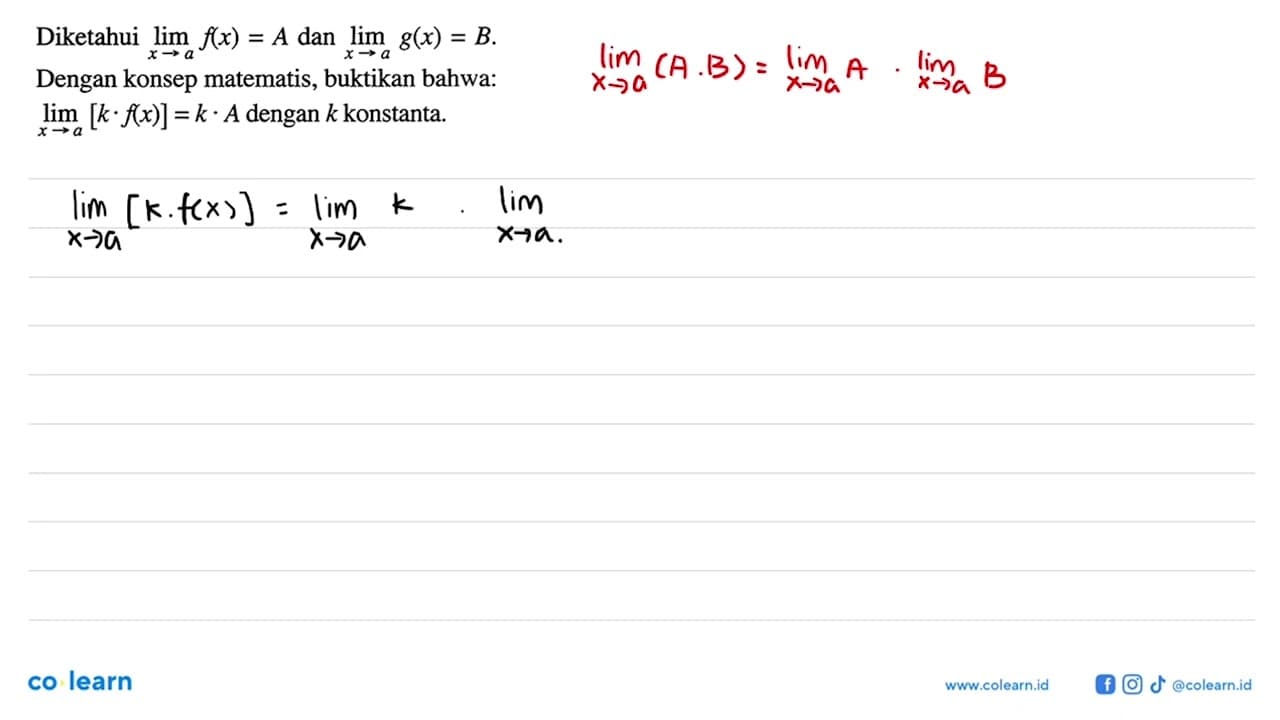 Diketahui lim x→a f(x) = A dan lim x→a g(x) = B.
Dengan konsep matematis, buktikan bahwa:
lim x→a [k · f(x)] = k · A dengan k konstanta.
lim x→a (A . B) = lim x→a A . lim x→a B
lim x→a [k . f(x)] = lim x→a k . lim x→a.
co learn
www.colearn.id
@colearn.id